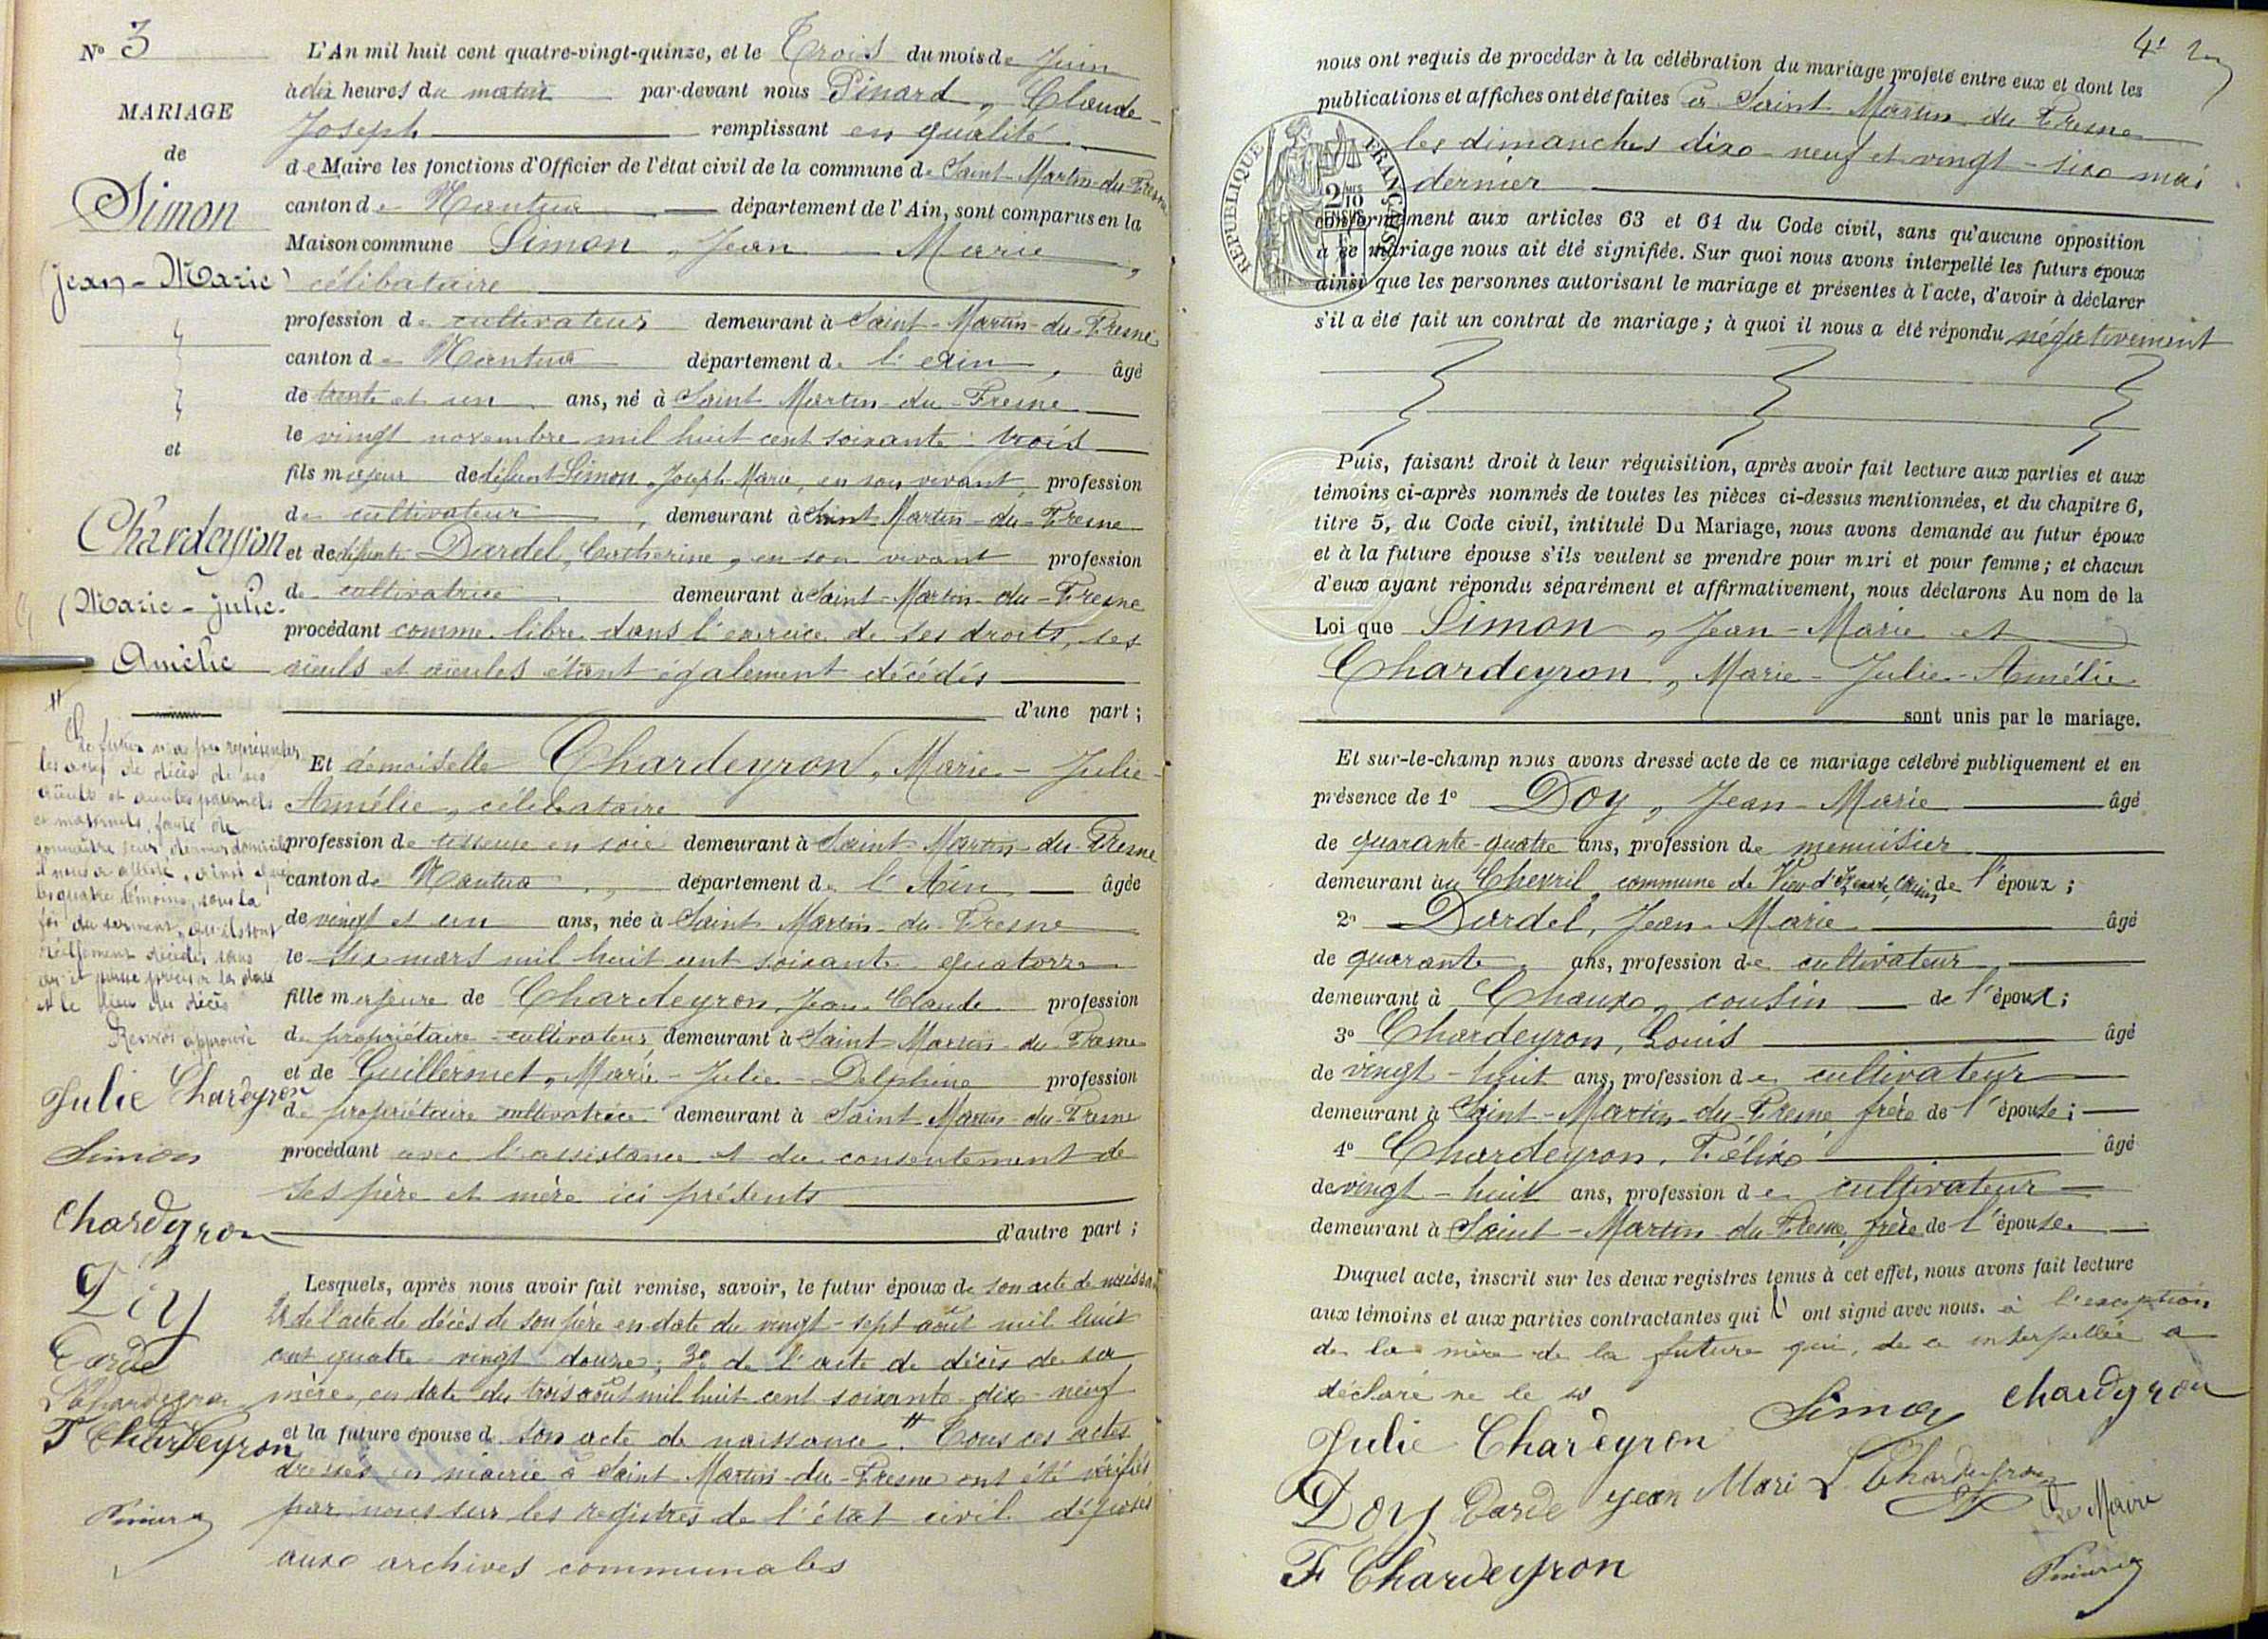 Nº 3
MARIAGE
de
Simon
(Jean-Marie)
et
Chardeyron
(Marie-Julie-
Amélie
Le futur n'a pu représenter
les actes de décès de ses
aïeuls et aïeules paternels
et maternels, faute de
connaître leur dernier domicile
il nous a attesté, ainsi que
les quatre témoins, sous la
foi du serment, qu'ils sont
réellement décédés, sans
qu'il puisse préciser la date
et le lieu du décès
Renvoi approuvé
Julie Chardeyron
Simon
Chardeyron
Doy
Darde
L Chardeyron
F Chardeyron
Pinard
L'An mil huit cent quatre-vingt-quinze, et le Trois du mois de Juin
à dix heures du matin par-devant nous Pinard, Claude-
Joseph remplissant en qualité
de Maire les fonctions d'Officier de l'état civil de la commune de Saint-Martin-du-Fresne
canton de Nantua département de l'Ain, sont comparus en la
Maison commune Simon, Jean-Marie,
célibataire
profession de cultivateur demeurant à Saint-Martin-du-Fresne
canton de Nantua département de l'Ain, âgé
de trente et un ans, né à Saint-Martin-du-Fresne
le vingt novembre mil huit cent soixante-trois
fils majeur de défunt Simon, Joseph-Marie, en son vivant, profession
de cultivateur, demeurant à Saint-Martin-du-Fresne
et de défunte Dardel, Catherine, en son vivant profession
de cultivatrice demeurant à Saint-Martin-du-Fresne
procédant comme libre dans l'exercice de ses droits, ses
aïeuls et aïeules étant également décédés
d'une part;
Et demoiselle Chardeyron, Marie-Julie-
Amélie, célibataire
profession de tisseuse en soie demeurant à Saint-Martin-du-Fresne
canton de Nantua, département de l'Ain âgée
de vingt et un ans, née à Saint-Martin-du-Fresne
le six mars mil huit cent soixante-quatorze
fille majeure de Chardeyron, Jean-Claude profession
de propriétaire-cultivateur demeurant à Saint-Martin-du-Fresne
et de Guillermet, Marie-Julie-Delphine profession
de propriétaire cultivatrice demeurant à Saint-Martin-du-Fresne
procédant avec l'assistance et du consentement de
ses père et mère ici présents
d'autre part;
Lesquels, après nous avoir fait remise, savoir, le futur époux de son acte de naissance
2º de l'acte de décès de son père en date du vingt-sept août mil huit
cent quatre-vingt-douze; 3º de l'acte de décès de sa
mère, en date du trois août mil huit cent soixante-dix-neuf
et la future épouse d son acte de naissance. Tous ces actes
dressés en mairie à Saint-Martin-du-Fresne ont été vérifiés
par nous sur les registres de l'état civil déposés
aux archives communales
nous ont requis de procéder à la célébration du mariage projeté entre eux et dont les
publications et affiches ont été faites à Saint-Martin-du-Fresne
les dimanches dix-neuf et vingt-six mai
dernier
RÉPUBLIQUE FRANÇAISE
2/10
conformément aux articles 63 et 64 du Code civil, sans qu'aucune opposition
à ce mariage nous ait été signifiée. Sur quoi nous avons interpellé les futurs époux
ainsi que les personnes autorisant le mariage et présentes à l'acte, d'avoir à déclarer
s'il a été fait un contrat de mariage; à quoi il nous a été répondu négativement
Puis, faisant droit à leur réquisition, après avoir fait lecture aux parties et aux
témoins ci-après nommés de toutes les pièces ci-dessus mentionnées, et du chapitre 6,
titre 5, du Code civil, intitulé Du Mariage, nous avons demandé au futur époux
et à la future épouse s'ils veulent se prendre pour mari et pour femme; et chacun
d'eux ayant répondu séparément et affirmativement, nous déclarons Au nom de la
Loi que Simon, Jean-Marie et
Chardeyron, Marie-Julie-Amélie
sont unis par le mariage.
Et sur-le-champ nous avons dressé acte de ce mariage célébré publiquement et en
présence de 1º Doy, Jean-Marie âgé
de quarante-quatre ans, profession de menuisier
demeurant au Chevril commune de Vieu d'Izenave, de l'époux;
2º Dardel, Jean-Marie âgé
de quarante ans, profession de cultivateur
demeurant à Chaux, cousin de l'époux;
3º Chardeyron, Louis âgé
de vingt-huit ans, profession de cultivateur
demeurant à Saint-Martin-du-Fresne frère de l'épouse;
4º Chardeyron, Félix âgé
de vingt-huit ans, profession de cultivateur
demeurant à Saint-Martin-du-Fresne, frère de l'épouse.
Duquel acte, inscrit sur les deux registres tenus à cet effet, nous avons fait lecture
aux témoins et aux parties contractantes qui l'ont signé avec nous. à l'exception
de la mère de la future qui, de ce interpellée a
déclaré ne le
Simon Chardeyron
Julie Chardeyron
Doy Darde Jean Mari L Chardeyron
Le Maire
F Chardeyron
Pinard